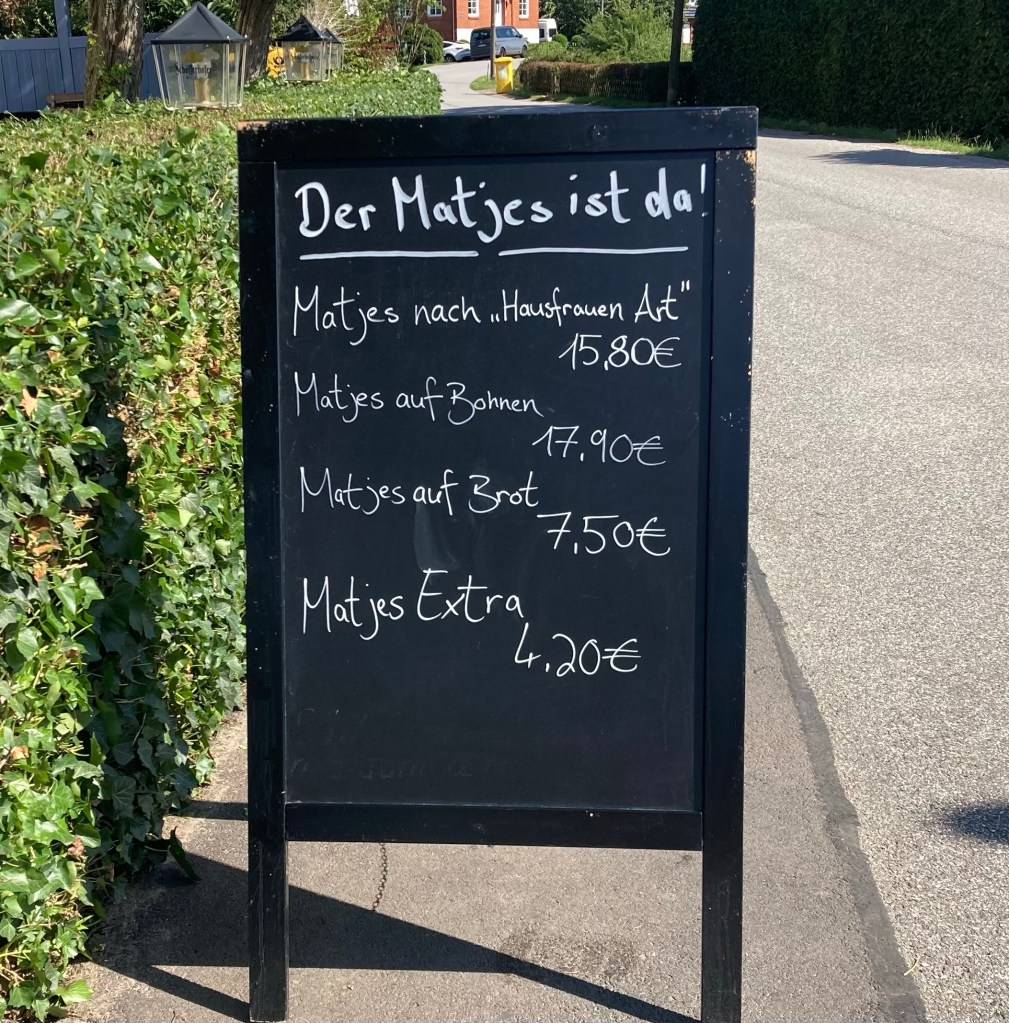 Schöfferhofer
Der Matjes ist da!
Matjes nach „Hausfrauen Art"
15,80€
Matjes auf Bohnen
17,90€
Matjes auf Brot
7,50€
Matjes Extra
4,20€